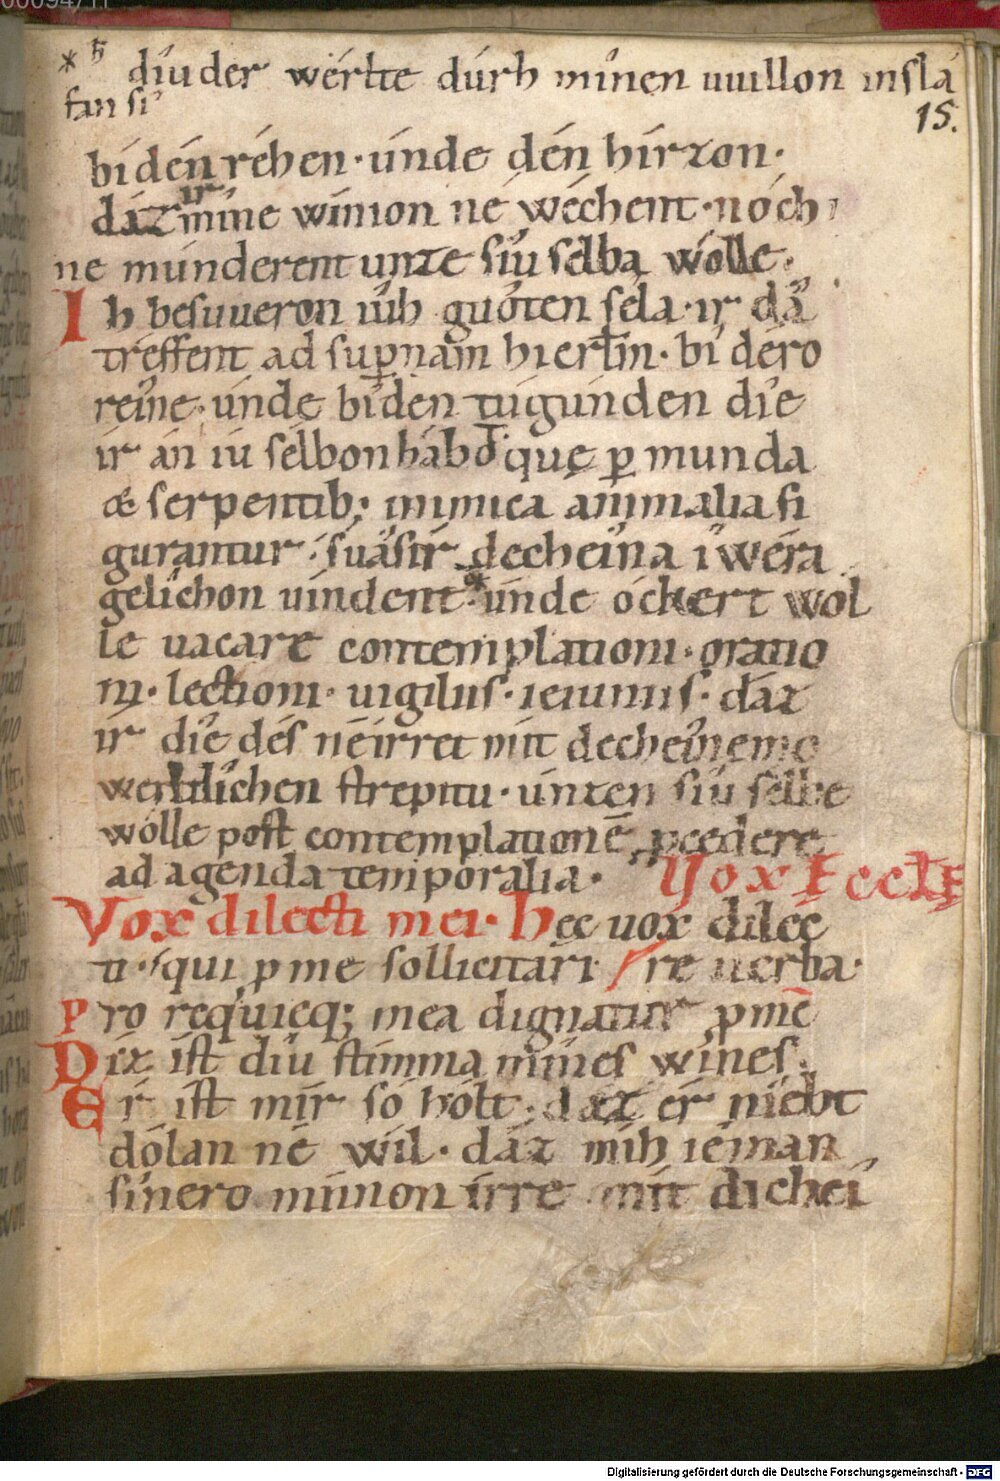 * ħ diu der wérlte dúrh mînen uuillon insla
fan si
15.
bi dén réhen · únde dén hírzon ·
dáz ir mîne wínion ne wécchent · nóch
ne múnderent únze sîu sélba wólle ·
Ih besuueron iûh gûoten sêla · ir dâ
tréffent ad supnam hierłm · bi déro
reîne · únde bi den túgúnden dîe
ír án iû sélbon hábd̄ · quę p munda
& serpentib; inimica animalia fi
gurantur · suâ sír decheîna iwéra
gelîchon uíndent · únde óckert wol
le uacare contemplationi · oratio
ni · lectioni · uigiliis · ieiuniis · dáz
ír dîe dés nę írret mit decheînemo
werltlîchen strepitu · únzen siu sélbe
wólle post contemplationē pcedere
ad agenda temporalia · Vox Eccłę
Vox dilecti mei · Hęc uox dilec
ti · qui p me sollicitari re uerba ·
Pro requieq; mea dignatur p mē
Díz ist díu stímma mînes wînes ·
Er ist mír só hólt · dáz ér níebt
dólan né wíl · dáz míh íeman
sînero mínnon írre mít dicheî
Digitalisierung gefördert durch die Deutsche Forschungsgemeinschaft - DFG